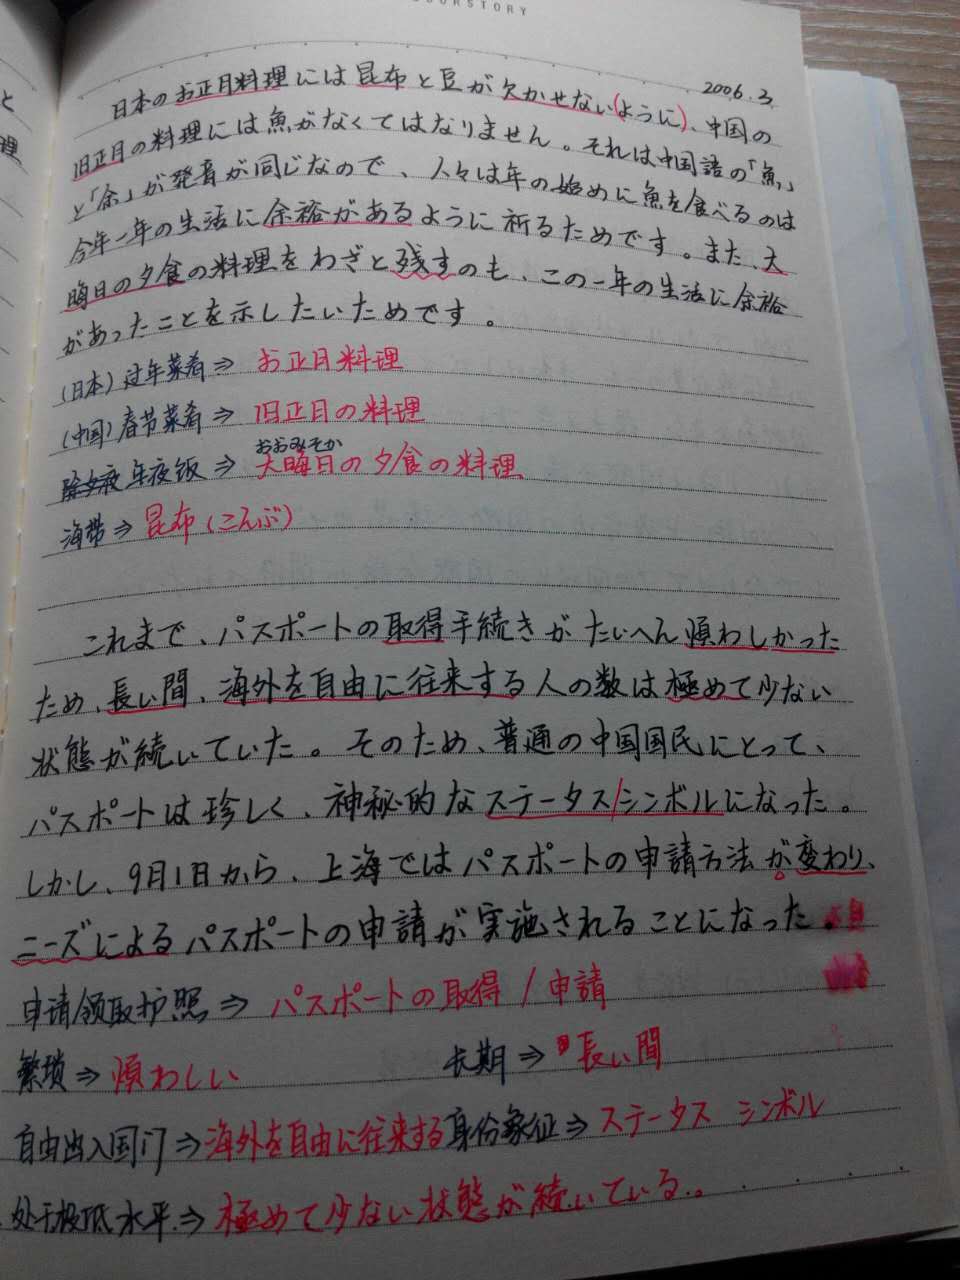 2006.3.
日本のお正月料理には昆布と豆が欠かせない(ように)、中国の
旧正月の料理には魚がなくてはなりません。それは中国語の「魚」
と「余」が発音が同じなので、人々は年の始めに魚を食べるのは
今年一年の生活に余裕があるように祈るためです。また、大
晦日の夕食の料理をわざと残すのも、この一年の生活に余裕
があったことを示したいためです。
(日本)过年菜肴⇒ お正月料理
(中国)春节菜肴⇒ 旧正月の料理
おおみそか
年夜饭⇒ 大晦日の夕食の料理
海带⇒昆布(こんぶ)
これまで、パスポートの取得手続きがたいへん煩わしかった
ため、長い間、海外を自由に往来する人の数は極めて少ない
状態が続いていた。そのため、普通の中国国民にとって、
パスポートは珍しく、神秘的なステータス/シンボルになった。
しかし、9月1日から、上海ではパスポートの申請方法が変わり、
ニーズによるパスポートの申請が実施されることになった。
申请领取护照⇒ パスポートの取得/申請
繁琐⇒煩わしい 长期⇒長い間
自由出入国门⇒海外を自由に往来する身份象征⇒ステータス シンボル
处于极低水平⇒極めて少ない状態が続いている。